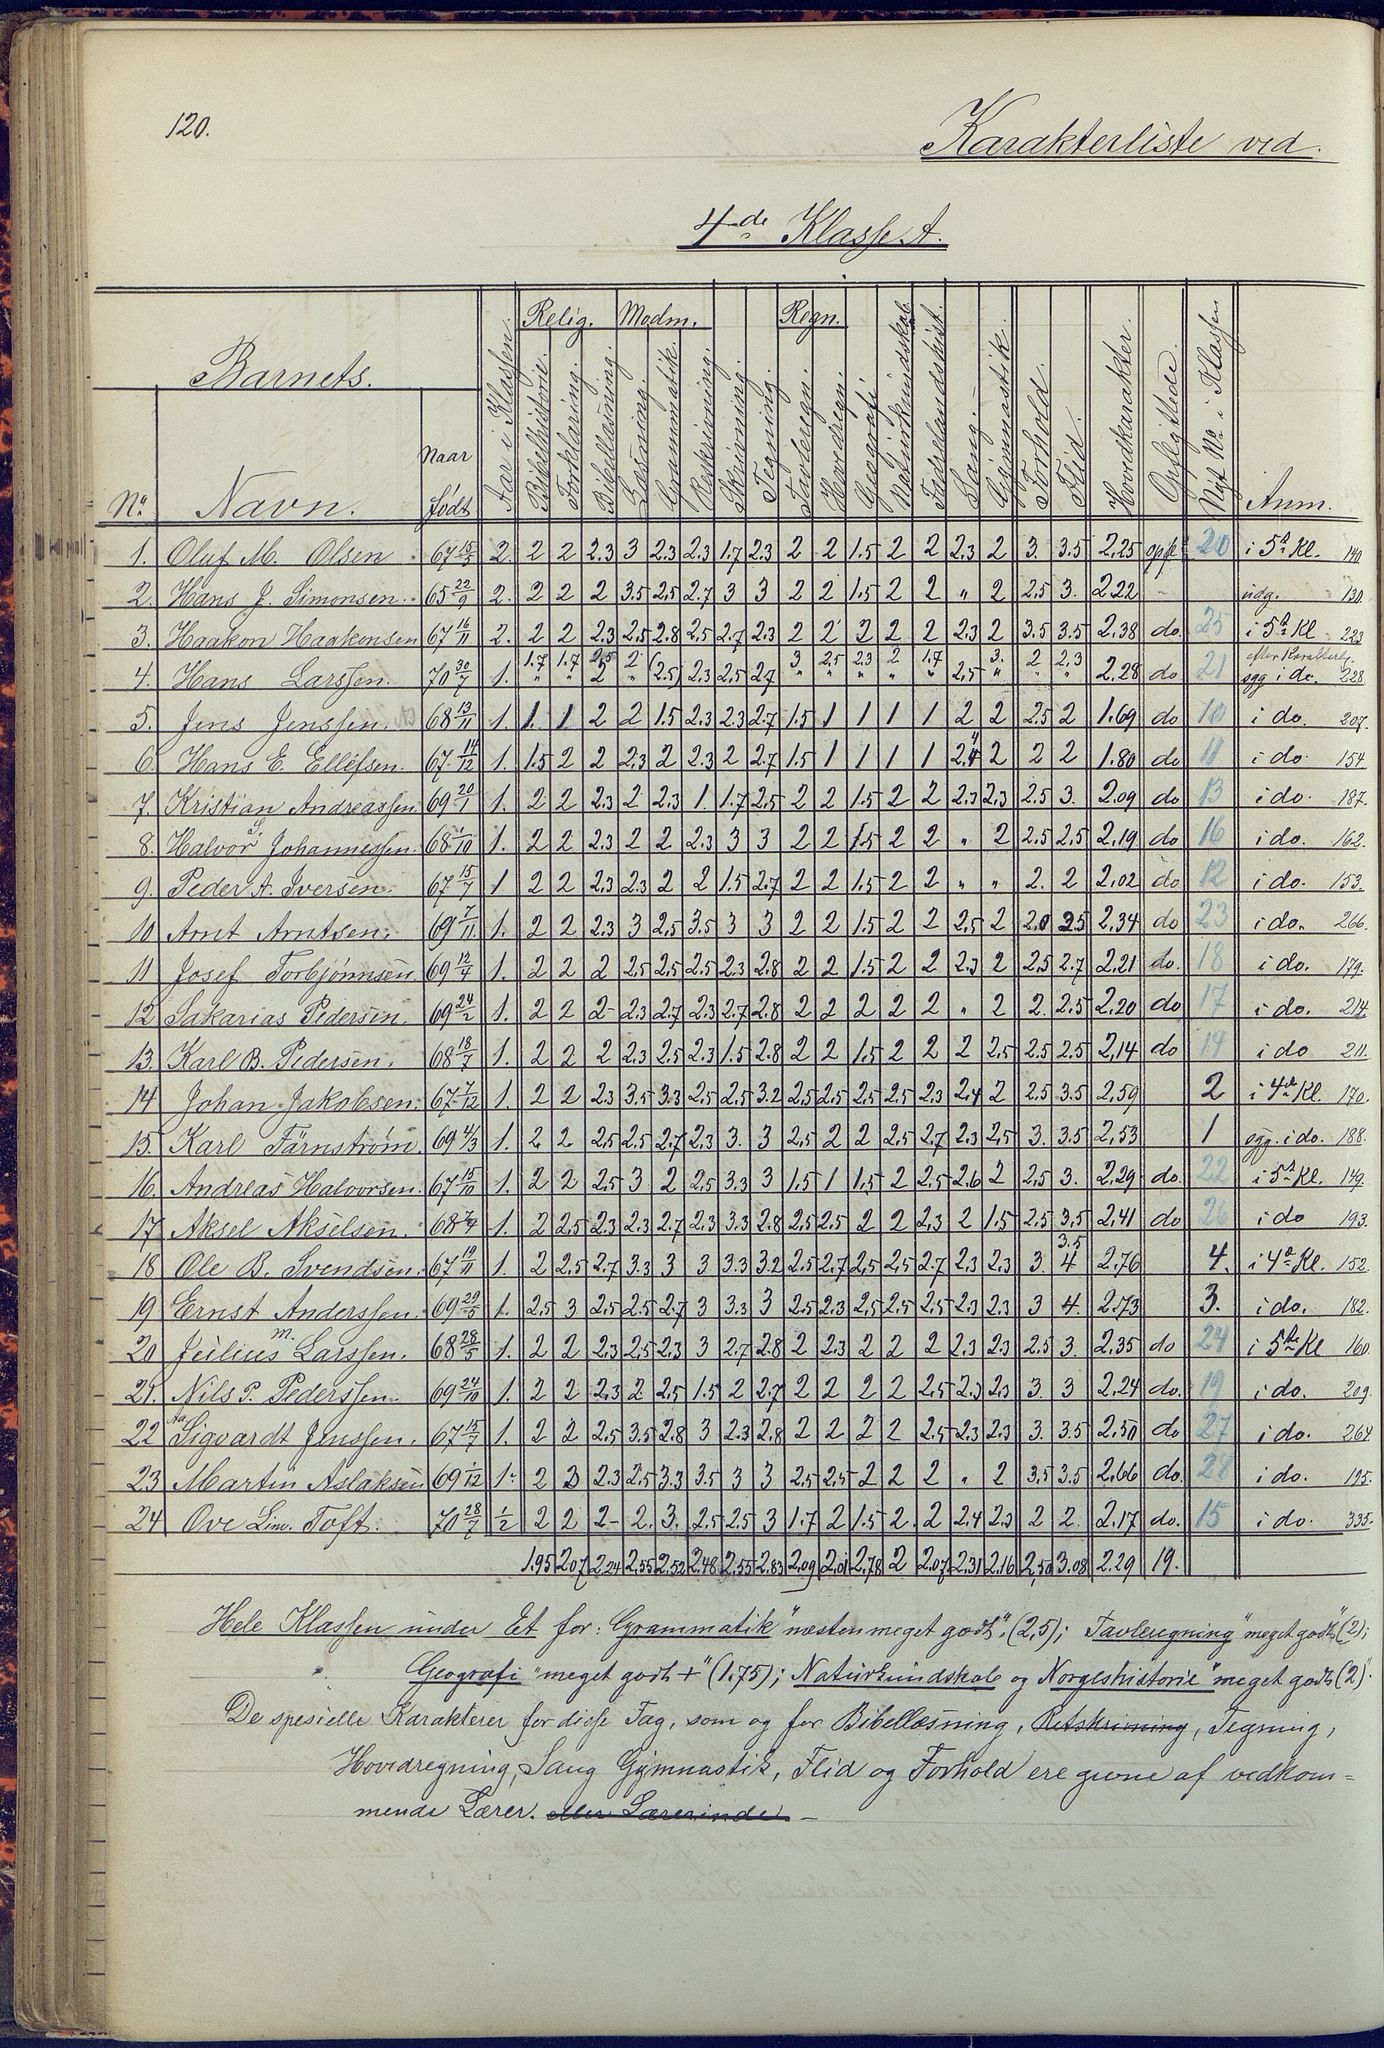 120.
Karakterliste ved.
4de Klasse A.
Barnets. Aar i Klassen. Relig. Modm. Regn.
No. Navn. Naar født Bibelhistorie. Forklaring. Bibellæsning. Læsning. Grammatik. Retskrivning. Skrivning. Tegning. Tavleregn. Hovedregn. Geografi Naturkundskab Fædrelandshist. Sang. Gimnastik. Forhold. Flid. Hovedkarakter. Opflyttede. Nyt No i Klassen Anm.
1. Olaf M. Olsen 67 15/5 2. 2 2 2.3 3 2.3 2.3 1.7 2.3 2 2 1.5 2 2 2.3 2 3. 3.5 2.25 opfl. 20 i 5te Kl. 140
2. Hans J. Simonsen. 65 22/9 2. 2 2 2 3.5 2.5 2.7 3 3 2 2 1.5 2 2 " 2 2.5 3. 2.22 - udg. 130
3. Haakon Haakensen 67 16/11 2. 2 2 2.3 2.5 2.8 2.5 2.7 2.3 2 2 2 2 2 2.3 2 3.5 3.5 2.38 do. 25 i 5te Kl 223
4. Hans Larssen. 70 30/7 1. 1.7 1.7 2.5 2 2 (2.5) 2.3 2.5 2.7 3 2.5 2.3 2 1.7 2.5 3. 2 2.3 2.28 do 21 i do. 228
5. Jens Jenssen. 68 13/11 1. 1. 1 2 2 1.5 2.3 2.3 2.7 1.5 1 1 1 1 2 2 2.5 2 1.69 do 10 i do. 207.
6. Hans E. Ellefsen. 67 14/12 1. 1.5 2 2 2.3 2 2.3 2 2.7 1.5 1 1 1 1 2.4 2 2 2 1.80 do 11 i do. 154
7. Kristian Andreassen 69 20/1 1. 2 2 2.3 2 2.3 1. 1.7 2.5 2 2 1.5 2 2 2.3 2.3 2.5 3. 2.09 do 13 i do. 187.
8. Halvor Johannessen. 68 1/10 1. 2 2 2.3 2 2 2.3 3 3 2 2 1.5 2 2 " 2 2.5 2.5 2.19 do 16 i do. 162.
9. Peder A. Iversen. 67 15/7 1 2 2 2.3 2.3 2 2 1.5 2.7 2 2 1.5 2 2 " " 2. 2 2.02 do 12 i do. 153.
10 Arnt Arntsen. 69 7/11 1. 2 2 2.3 3 2.5 3.5 3 3 2 2 1.5 2 2 2.5 2 2.0 2.5 2.34 do 23 i do. 266.
11 Josef Torbjørnsen 69 12/4 1. 2 2 2 2.5 2.5 2.5 2.3 2.8 2 2 1.5 2 2 2.3 2 2.5 2.7 2.21 do. 18 i do. 179.
12 Sakarias Pedersen. 69 24/2 1. 2 2 2 2.3 2.7 2.3 2.7 2.8 2 2 2 2 2 " 2 2. 2.5 2.20 do 17 i do. 214.
13. Karl B. Pedersen. 68 18/7 1. 2 2 2 2.3 2.5 2.3 1.5 2.8 2 2 1.5 2 2 2 2.5 2.5 2.5 2.14 do 14 i do 211.
14 Johan Jakobsen. 67 7/12 1. 2 2 2.3 3.5 3.3 2.5 2.5 3.2 2.5 2.5 2.5 2.5 2.3 2.4 2 2.5 3.5 2.59 2 i 4de Kl. 170.
15. Karl Färnstrøm 69 4/3 1. 2 2. 2.5 2.5 2.7 2.3 3. 3 2.5 2 2 2.5 2.7 2.3 2.5 3. 3.5 2.53 1 i do. 188.
16. Andreas Halvorsen. 67 15/10 1. 2 2 2.5 3 2 2.5 3.3 3 1.5 1 1.5 2 2.5 2.6 2 2.5 3. 2.29 do. 22 i 5te Kl. 149.
17 Aksel Akselsen. 68 7/4 1. 2 2.5 2.3 2.3 2.7 2.3 3.3 2.8 2.5 2.5 2 2 2.3 2 1.5 2.5 3.5 2.41 do 26 i do 193.
18 Ole B. Svendsen. 67 19/11 1. 2 2.5 2.7 3.3 3 3 3.3 3.2 2.5 2.7 2.5 2.5 2.7 2.3 2.3 3. 3.5 4 2.76 4. i 4de Kl. 152.
19 Ernst Anderssen. 69 29/5 1. 2.5 3 2.5 2.5 2.7 3 3.3 3 2.5 2.3 2.5 2.5 2.5 2.3 2.3 3 4. 2.73 3. i do. 182.
20 Julius M. Larssen. 68 28/5 1. 2 2 2.3 2.5 2.3 3 2.7 2.8 2 2.3 2 2 2 2.3 2.3 2.5 3. 2.35 do 24 i 5te Kl 160.
21. Nils P. Pederssen. 69 24/10 1. 2 2 2.3 2 2.5 1.5 2 2.7 2 2 2 2 2.5 2.3 2.3 3. 3 2.24 do. 19 i do. 209.
22 Sigvardt Jenssen. 67 15/7 1. 2 2 2.5 3.5 2.8 3 2.3 2.8 2 2 2 2 2.5 2.3 2.3 3. 3.5 2.50 do 27 i do. 264
23 Martin Aslaksen 69 1/12 1. 2 2 2.3 2.5 3.3 3.5 3 3 2.5 2.5 2 2 2 " 2 3.5 3.5 2.66 do. 28 i do. 195.
24 Ove Toft. 70 28/7 1/2 2 2 2 2. 3. 2.5 2.5 3 1.7 2 1.5 2. 2 2.4 2.3 2 2. 2.17 do. 15 i do. 335.
1.95 2.07 2.24 2.55 2.52 2.48 2.55 2.83 2.09 2.01 2.78 2 2.07 2.31 2.16 2.50 3.08 2.29 19.
Hele Klassen under Et for: Grammatik "næsten meget godt". (2,5); Tavleregning "meget godt" (2);
" Geografi "meget godt +" (1.75); Naturkundskab og Norgeshistorie "meget godt (2)".
De spesielle Karakterer for disse Fag, som og for Bibellæsning, Retskrivning, Tegning,
Hovedregning, Sang Gymnastik, Flid og Forhold ere givne af vedkom=
mende Lærer. eller Lærerinde. -